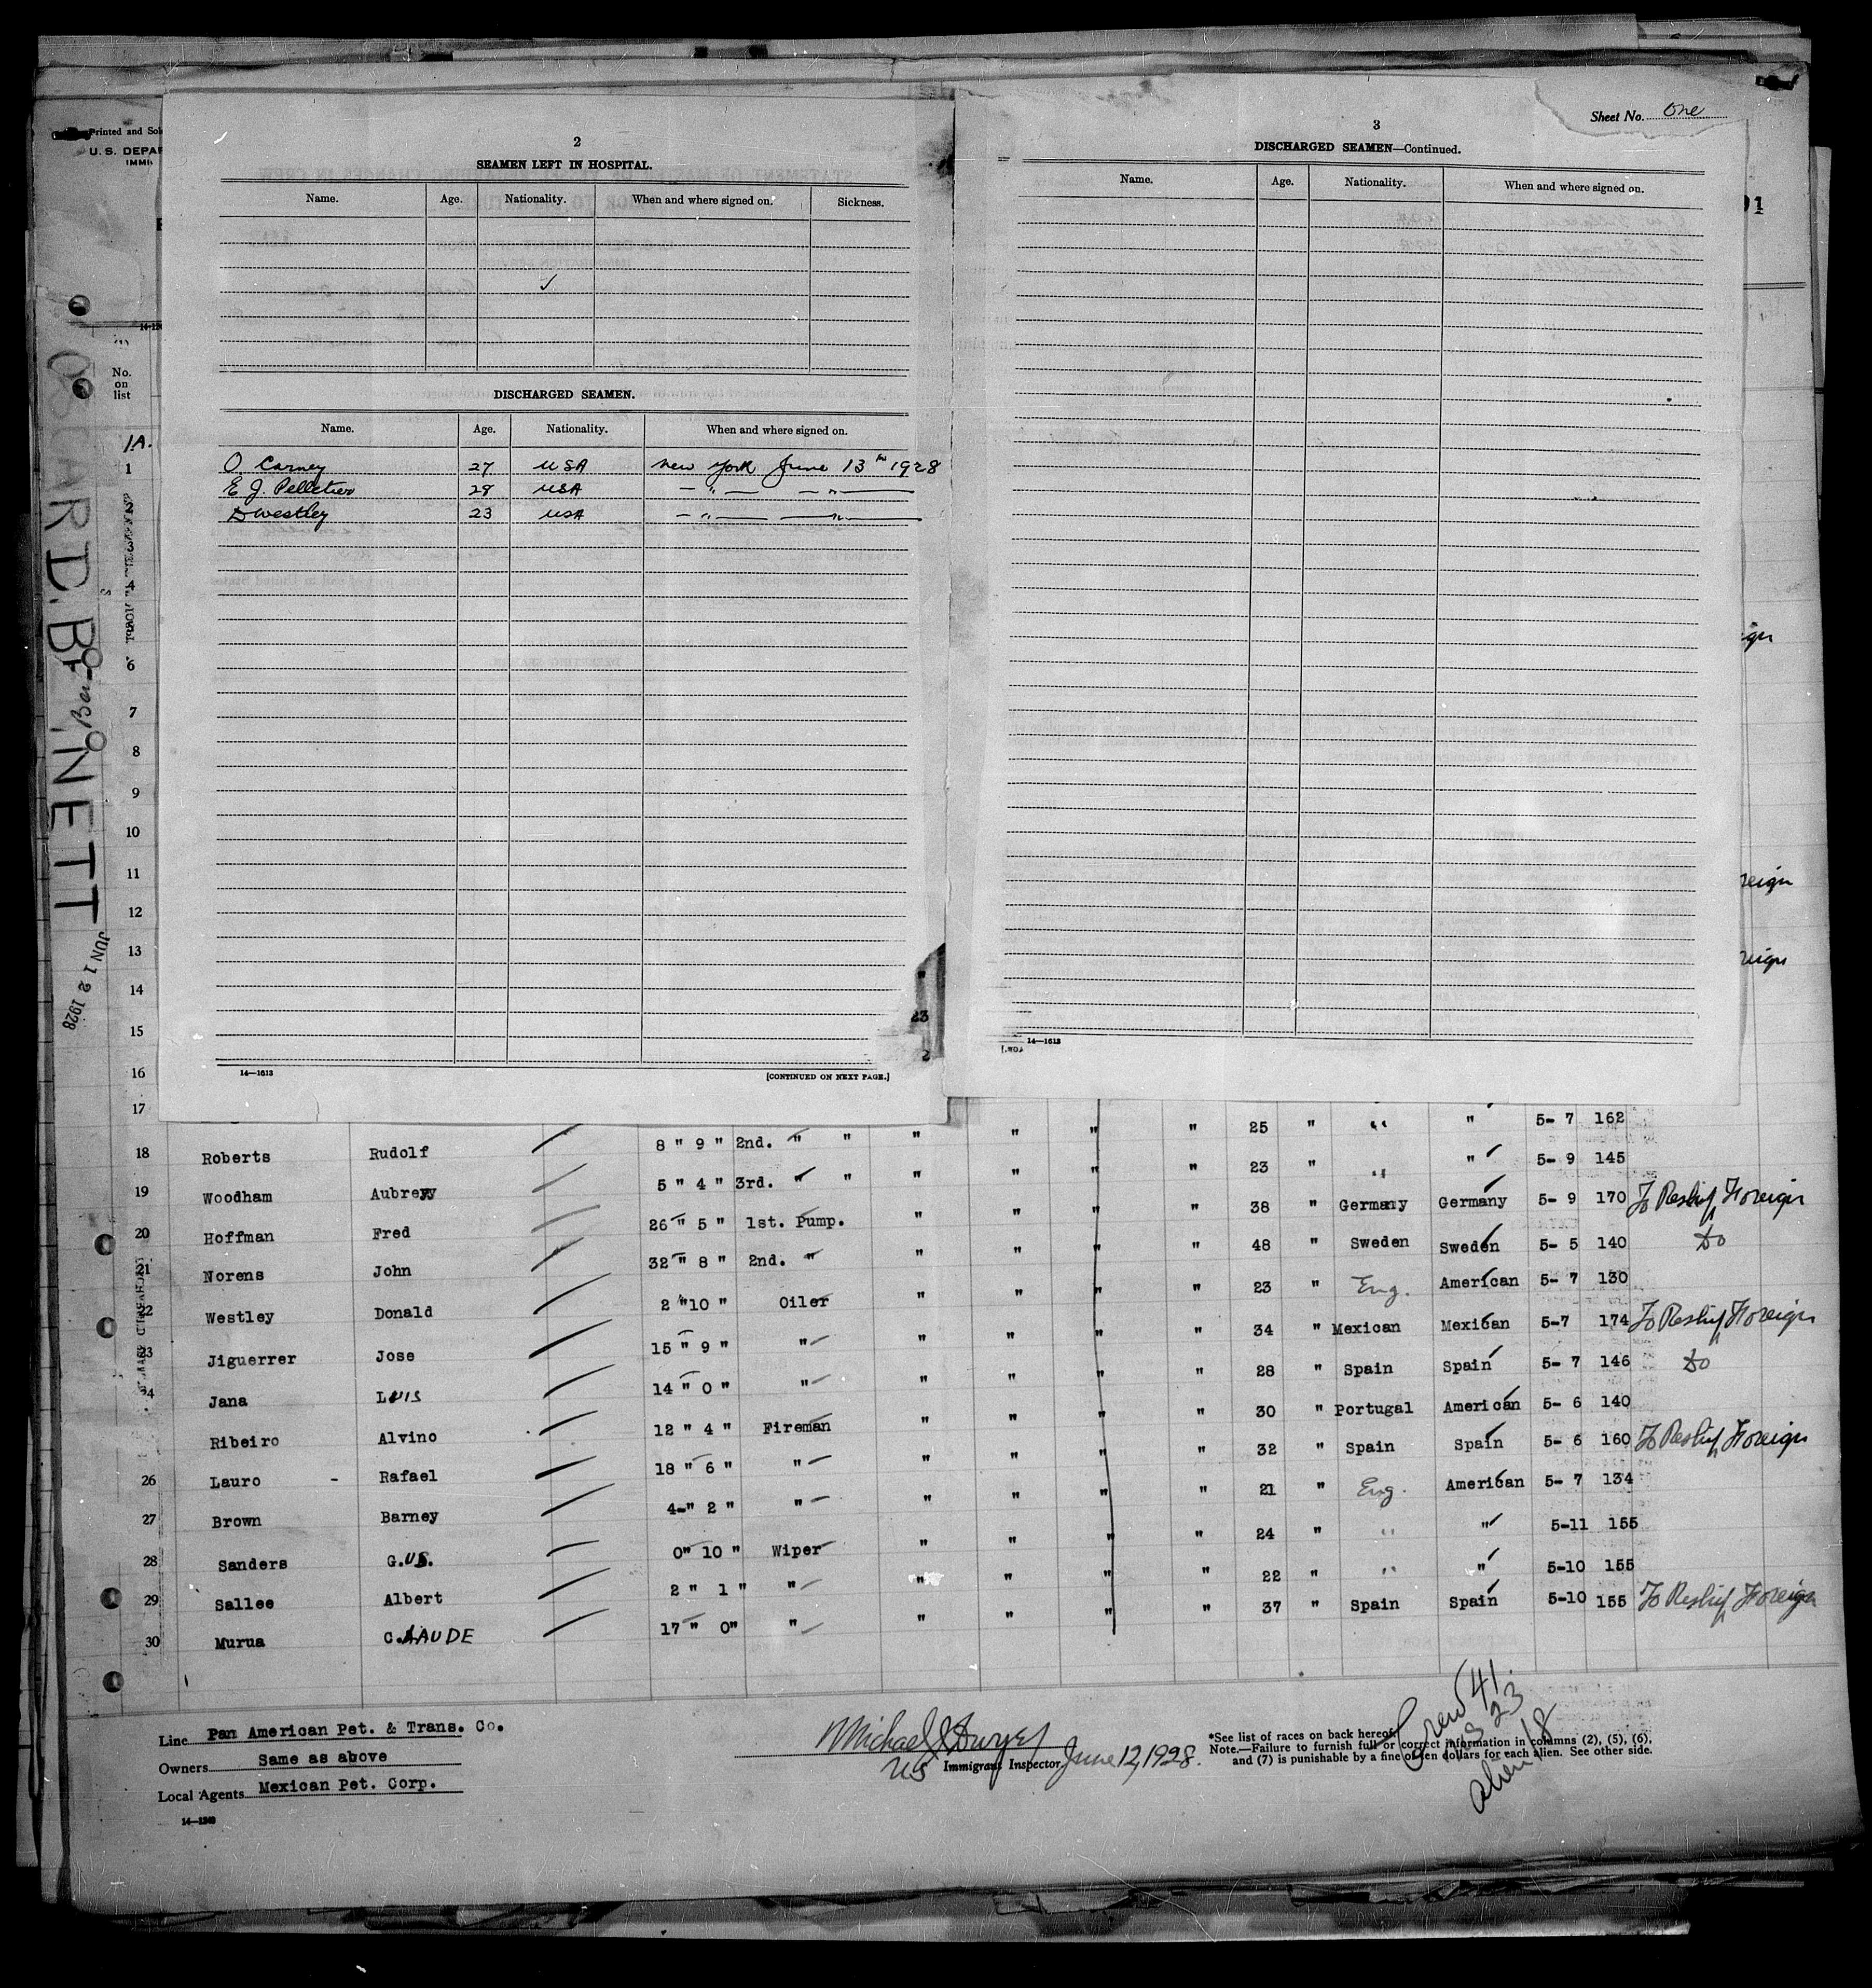 Printed and Sol
U. S. DEPAR
IMMI
14-124
No.
on
list
1A.
1
2
4
6
7
8
9
10
11
12
13
14
15
16
17
JUN 12 1928
2
SEAMEN LEFT IN HOSPITAL.
Name. Age. Nationality. When and where signed on. Sickness.
✓
DISCHARGED SEAMEN.
Name. Age. Nationality. When and where signed on.
O. Carney 27 USA New York June 13th 1928
E J. Pelletier 28 USA — " — — " —
D Westley 23 USA — " — — " —
14—1613 [CONTINUED ON NEXT PAGE.]
23
2
Sheet No. One
3
DISCHARGED SEAMEN—Continued.
Name. Age. Nationality. When and where signed on.
14—1613
01
ign
reign
reign
" " " " 25 " " " 5- 7 162
18 Roberts Rudolf 8 " 9 " 2nd. " " " " " " 23 " " " 5- 9 145
19 Woodham Aubrey 5 " 4 " 3rd. " " " " " " 38 " Germany Germany 5- 9 170 To Reship Foreign
20 Hoffman Fred 26 " 5 " 1st. Pump. " " " " 48 " Sweden Sweden 5- 5 140 Do
21 Norens John 32 " 8 " 2nd. " " " " " 23 " Eng. American 5- 7 130
22 Westley Donald 2 "10 " Oiler " " " " 34 " Mexican Mexican 5-7 174 To Reship Foreign
23 Jiguerrer Jose 15 " 9 " " " " " " 28 " Spain Spain 5- 7 146 Do
4 Jana LUIS 14 " 0 " " " " " " 30 " Portugal American 5- 6 140
Ribeiro Alvino 12 " 4 " Fireman " " " " 32 " Spain Spain 5- 6 160 To Reship Foreign
26 Lauro - Rafael 18 " 6 " " " " " " 21 " Eng. American 5- 7 134
27 Brown Barney 4-" 2 " " " " " " 24 " " " 5-11 155
28 Sanders G.US. 0" 10 " Wiper " " " " 22 " " " 5-10 155
29 Sallee Albert 2 " 1 " " " " " " 37 " Spain Spain 5-10 155 To Reship Foreign
30 Murua CLAUDE 17 " 0" " " " "
Line Pan American Pet. & Trans. Co.
Owners Same as above
Local Agents Mexican Pet. Corp.
14—1240
Michael J Dwyer
US Immigrant Inspector June 12, 1928.
*See list of races on back hereof.
Note.—Failure to furnish full or correct information in columns (2), (5), (6),
and (7) is punishable by a fine of ten dollars for each alien. See other side.
Crew 41
US 23
alien 18